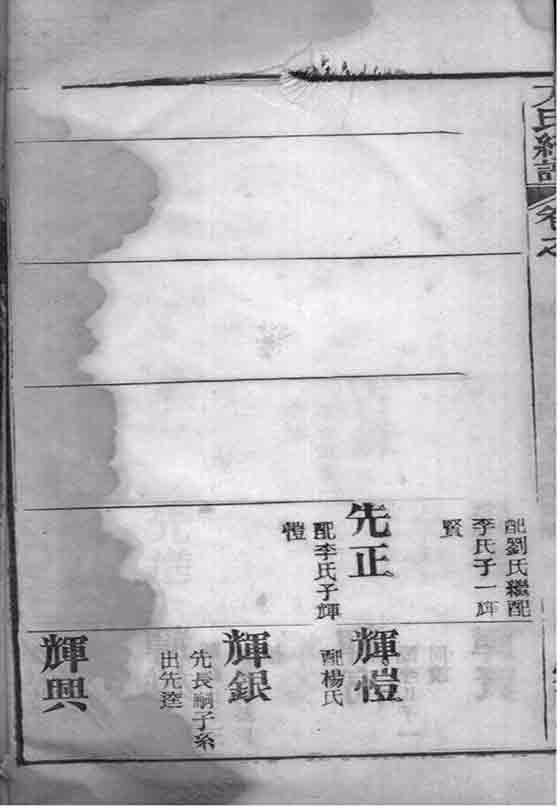 氏
卷之
配劉氏繼配
李氏子一輝
賢
先正
配李氏子輝
愷
輝愷
配楊氏
輝銀
先長嗣子系
出先達
輝興